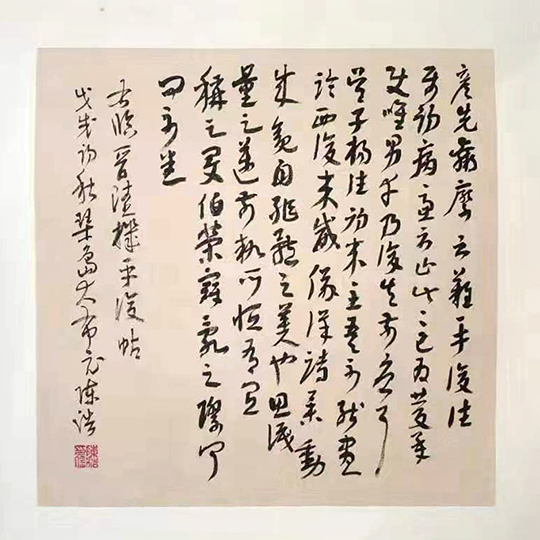 彦先羸瘵恐難平復往
屬初病慮不止此此已為慶承
使唯男幸為復失前憂耳
吴子楊往初來主吾不能盡
臨西復來威儀詳跱舉動
成觀自軀體之美也思識
量之邁前執所恒有宜
稱之夏伯榮寇亂之際聞
問不悉
右臨晉陸機平復帖
戊戌初秋琴島大布衣陳浩